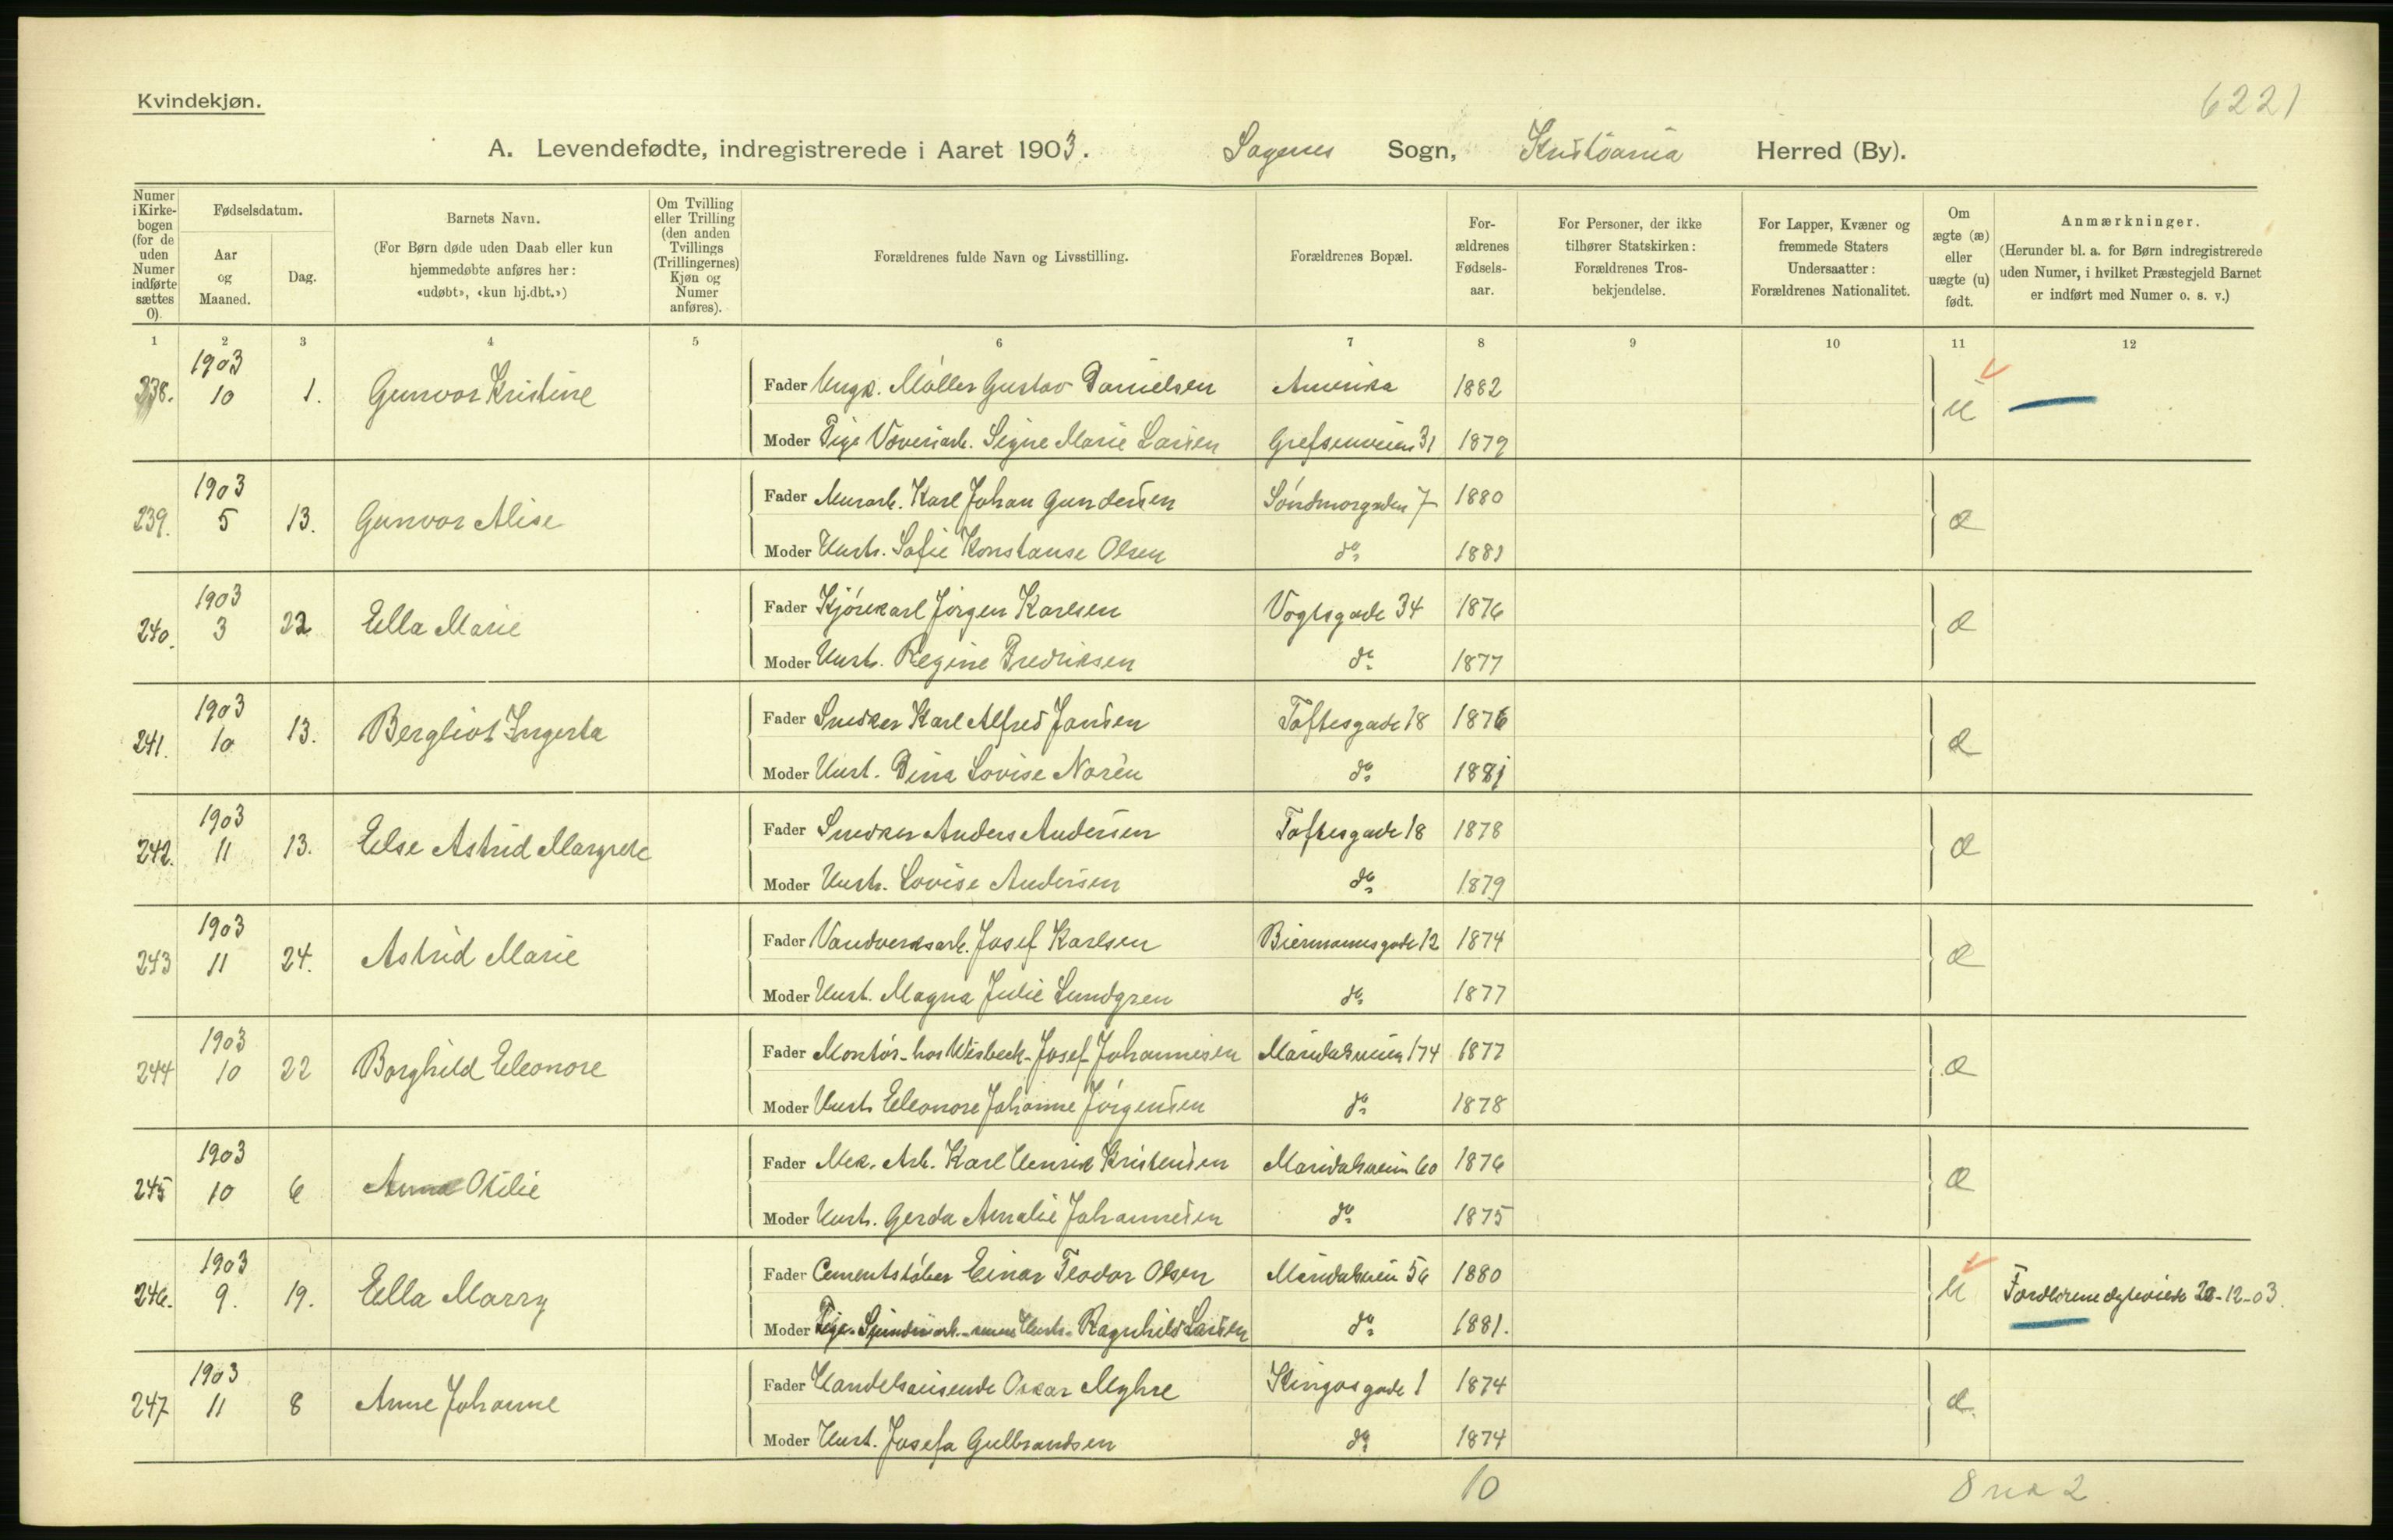 Kvindekjøn.
6221
A. Levendefødte, indregistrerede i Aaret 1903. Sagenes Sogn, Kristiania Herred (By).
Numer i Kirke-bogen (for de uden Numer indførte sættes 0).
Fødselsdatum.
Aar og Maaned.
Dag.
Barnets Navn.
(For Børn døde uden Daab eller kun hjemmedøbte anføres her: «udøbt», «kun hj.dbt.»)
Om Tvilling eller Trilling (den anden Tvillings (Trillingernes) Kjøn og Numer anføres).
Forældrenes fulde Navn og Livsstilling.
Forældrenes Bopæl.
For-ældrenes Fødsels-aar.
For Personer, der ikke tilhører Statskirken: Forældrenes Tros-bekjendelse.
For Lapper, Kvæner og fremmede Staters Undersaatter: Forældrenes Nationalitet.
Om ægte (æ) eller uægte (u) født.
Anmærkninger.
(Herunder bl. a. for Børn indregistrerede uden Numer, i hvilket Præstegjeld Barnet er indført med Numer o. s. v.)
1 2 3 4 5 6 7 8 9 10 11 12
238. 1903 10 1. Gunvor Kristine
Fader Ungk. Møller Gustav Danielsen Amerika 1882
Moder Pige Væveriarb. Signe Marie Larsen Grefsenveien 31 1879
u
239. 1903 5 13. Gunvor Alise
Fader Murarb. Karl Johan Gundersen Søndmørgaden 7 1880
Moder Hustr. Sofie Konstanse Olsen do 1881
æ
240. 1903 3 22 Ella Marie
Fader Kjørekarl Jørgen Karlsen Vogtsgade 34 1876
Moder Hustr. Regine Fredriksen do 1877
æ
241. 1903 10 13. Bergliot Ingerta
Fader Snedker Karl Alfred Jansen Toftesgade 18 1876
Moder Hust. Dina Lovise Norén do 1881
æ
242. 1903 11 13. Else Astrid Margrete
Fader Snedker Anders Andersen Toftesgade 18 1878
Moder Hustr. Lovise Andersen do 1879
æ
243 1903 11 24. Astrid Marie
Fader Vandverksarb. Josef Karlsen Biermannsgade 12 1874
Moder Hust. Magna Julie Lundgren do 1877
æ
244 1903 10 22 Borghild Eleonore
Fader Montør - hos Wisbech - Josef Johannesen Maridalsveien 174 1877
Moder Hustr Eleonore Johanne Jørgensen do 1878
æ
245 1903 10 6 Anna Otilie
Fader Mek. Arb. Karl Henrik Kristensen Maridalsveien 60 1876
Moder Hustr. Gerda Amalie Johannesen do 1875
æ
246. 1903 9. 19. Ella Marry
Fader Cementstøber Einar Teodor Olsen Maridalsveien 56 1880
Moder Pige. Spinderiarb. Hustr. Ragnhild Larsen do 1881.
u Forældrene ægteviede 28-12-03.
247 1903 11 8 Anne Johanne
Fader Handelsreisende Oskar Myhre Kingosgade 1 1874
Moder Hust. Josefa Gulbrandsen do 1874
æ
10
8 2